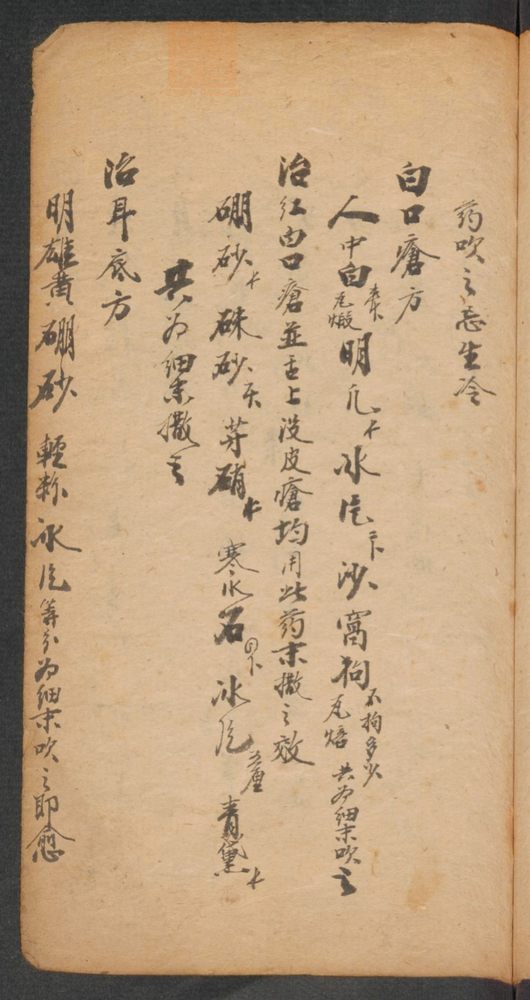 药吹之忌生冷
白口瘡方
人中白瓦煅 明凡 冰片 沙窩狗不拘多少瓦焙 共为细末吹之
治红白口瘡並舌上没皮瘡均用此药末撒之效
硼砂 硃砂 芽硝 寒水石 冰片五厘 青黛
共为细末撒之
治耳底方
明雄黄 硼砂 輕粉 冰片等分为细末吹之即愈